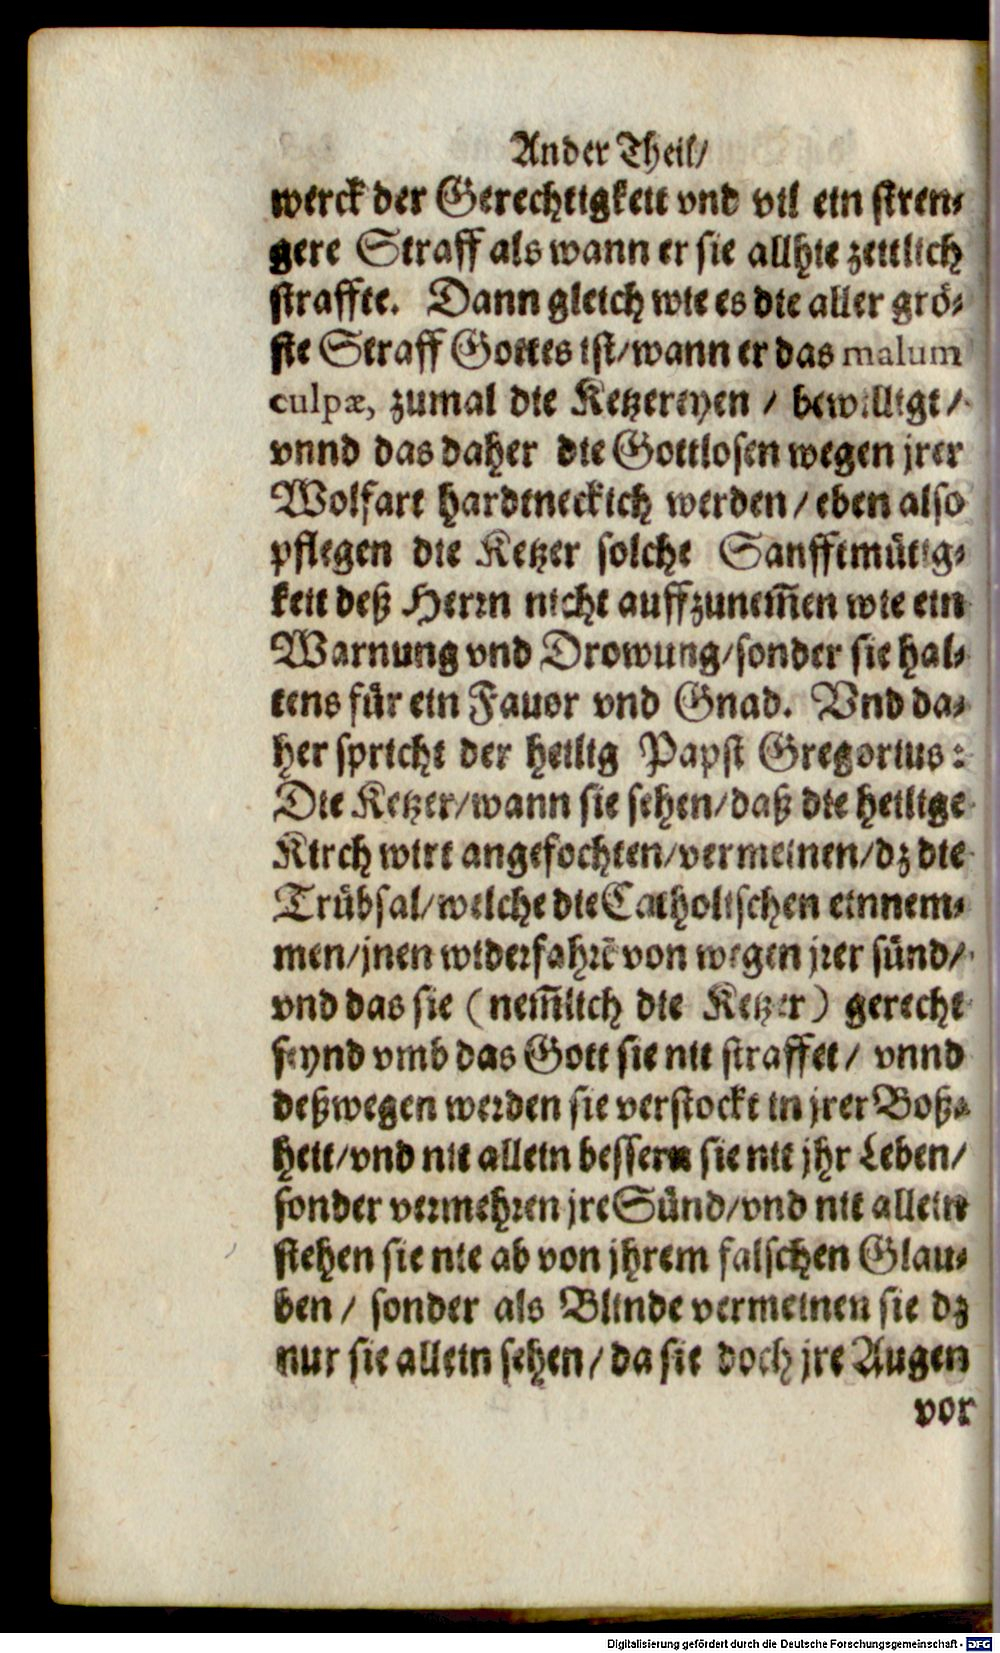 Ander Theil/
werck der Gerechtigkeit vnd vil ein stren-
gere Straff als wann er sie allhie zeitlich
straffte. Dann gleich wie es die aller grö-
ste Straff Gottes ist/wann er das malum
culpæ, zumal die Ketzereyen / bewilligt/
vnnd das daher die Gottlosen wegen jrer
Wolfart hardtneckich werden/eben also
pflegen die Ketzer solche Sanfftmütig-
keit deß Herrn nicht auffzunem̃en wie ein
Warnung vnd Drowung/sonder sie hal-
tens für ein Fauor vnd Gnad. Vnd da-
her spricht der heilig Papst Gregorius:
Die Ketzer/wann sie sehen/daß die heilige
Kirch wirt angefochten/vermeinen/dz die
Trübsal/welche die Catholischen einnem-
men/jnen widerfahrẽ von wegen jrer sünd/
vnd das sie (nem̃lich die Ketzer) gerecht
seynd vmb das Gott sie nit straffet/ vnnd
deßwegen werden sie verstockt in jrer Boß-
heit/vnd nit allein bessern sie nit jhr Leben/
sonder vermehren jre Sünd/vnd nit allein
stehen sie nit ab von jhrem falschen Glau-
ben / sonder als Blinde vermeinen sie dz
nur sie allein sehen/da sie doch jre Augen
vor
Digitalisierung gefördert durch die Deutsche Forschungsgemeinschaft - DFG